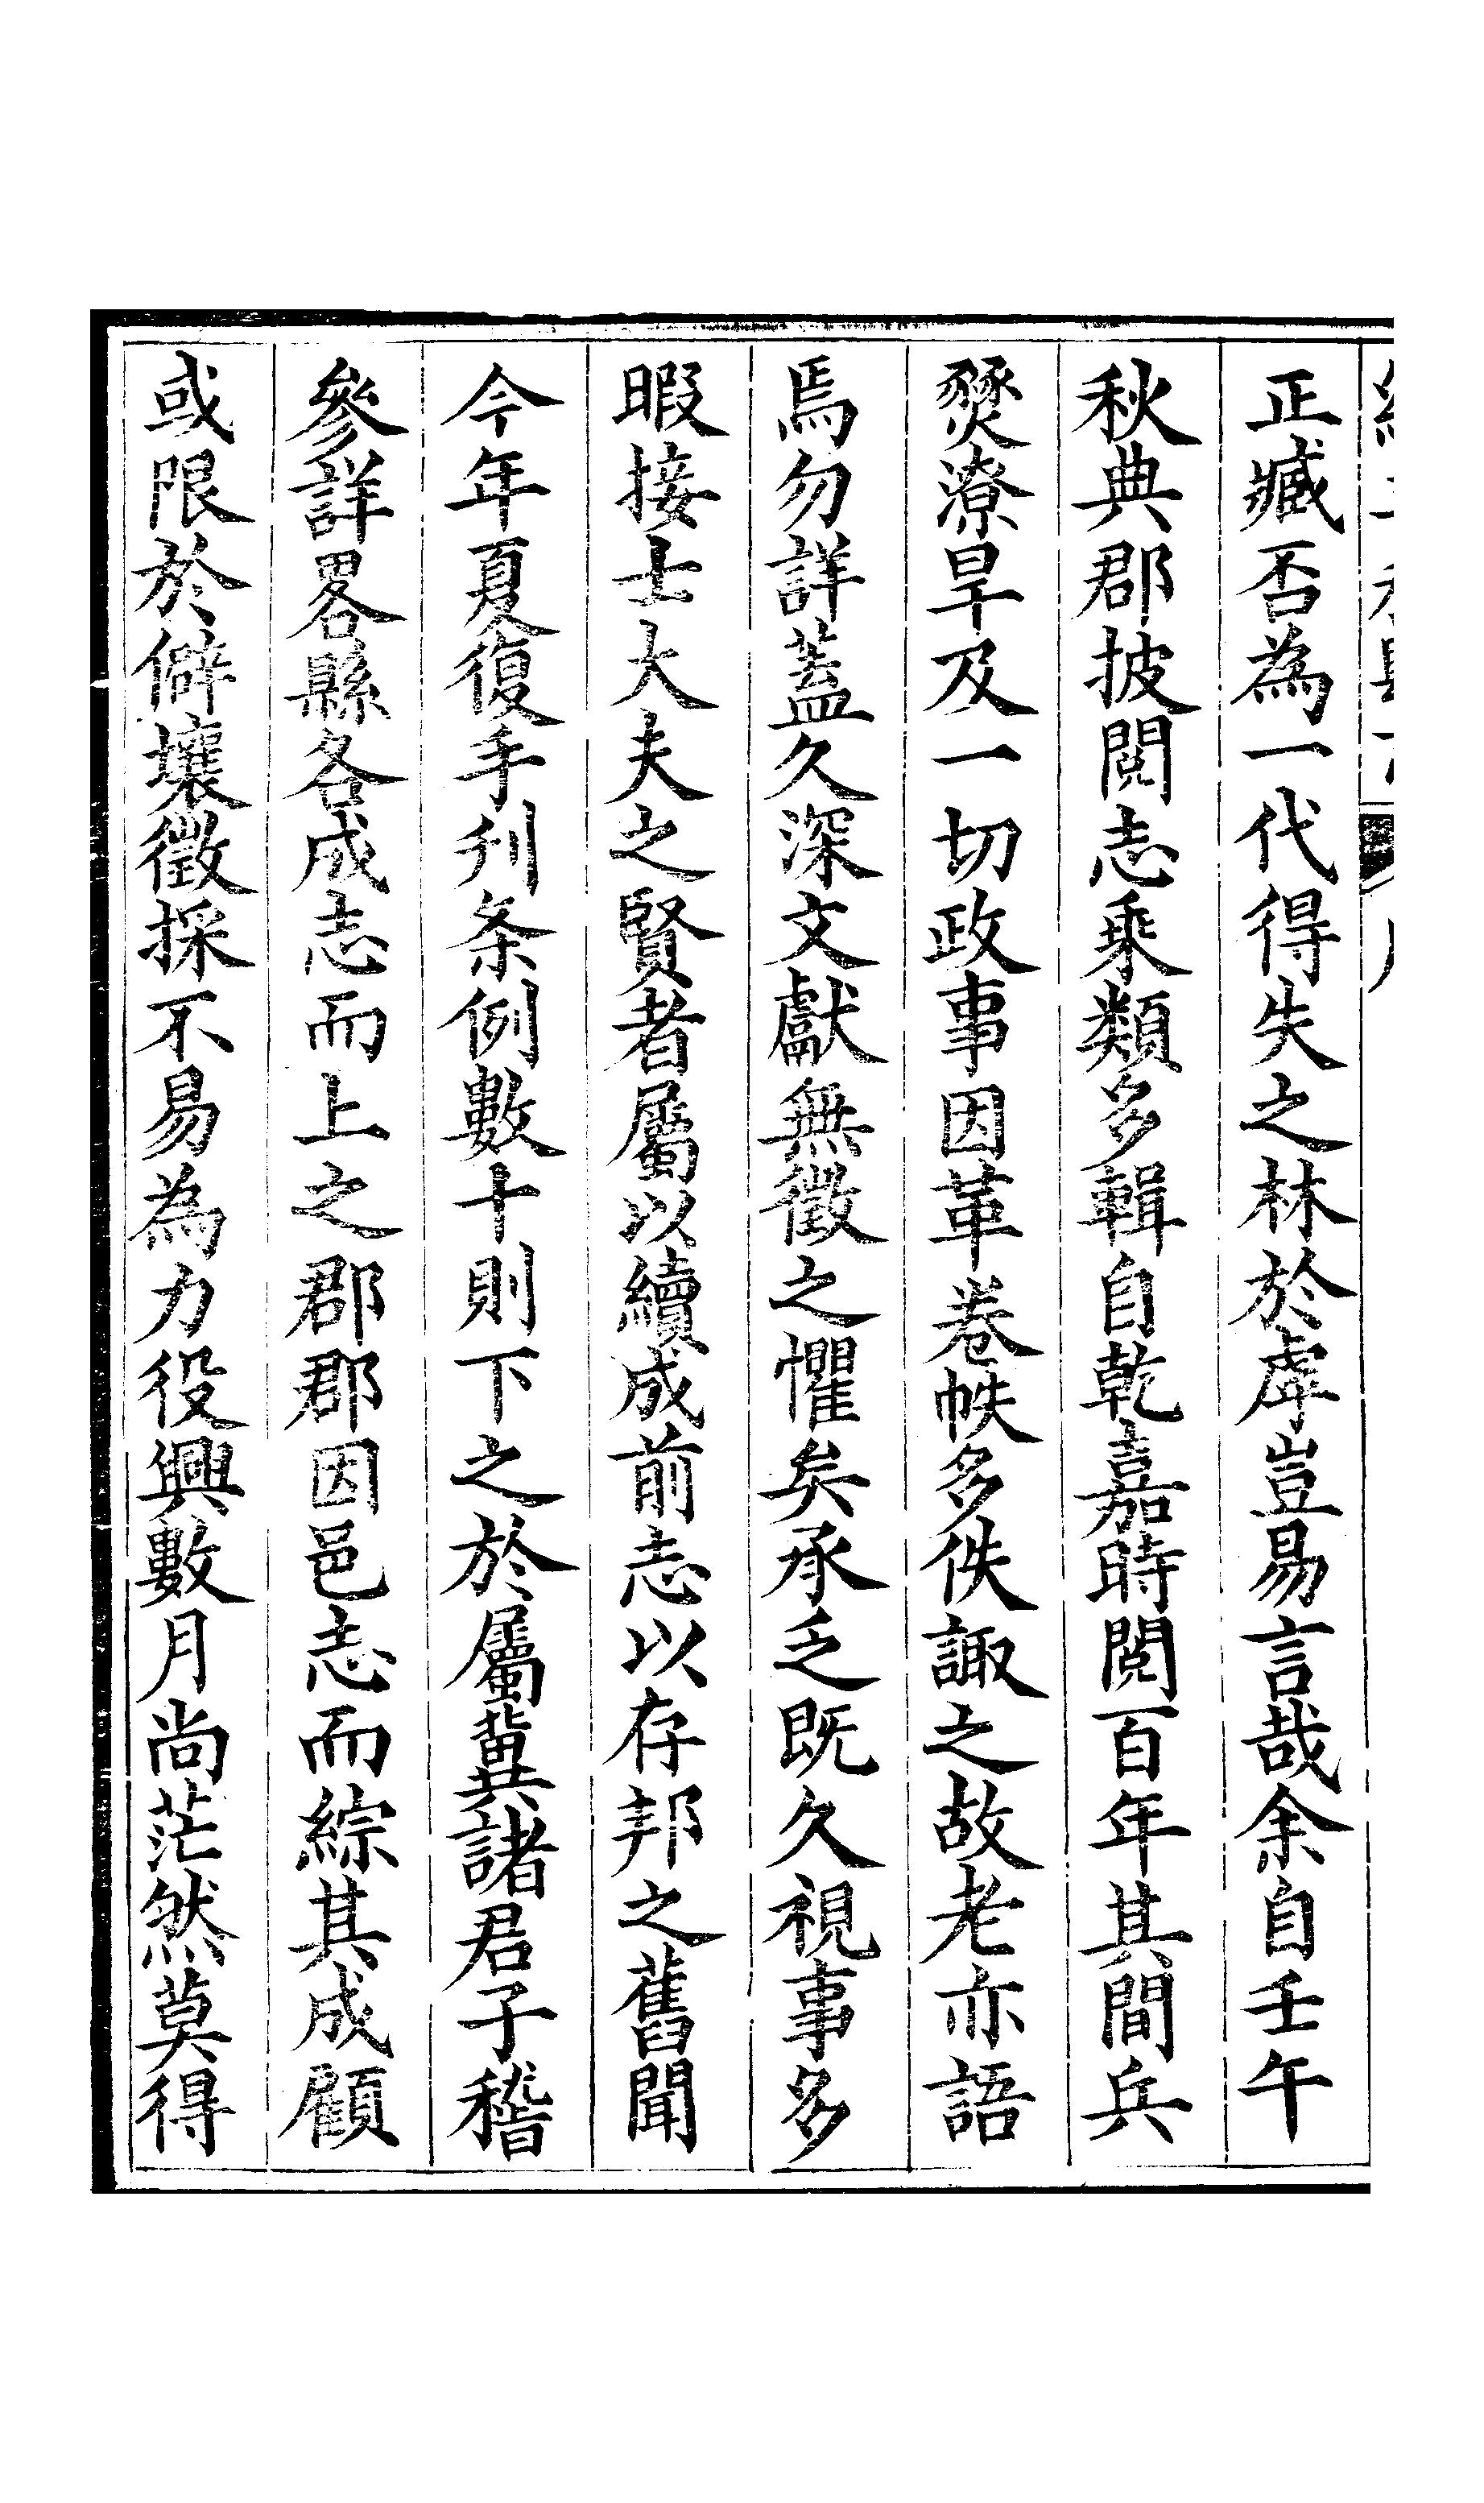 正臧否為一代得失之林於虖豈易言哉余自壬午
秋典郡披閱志乘類多輯自乾嘉時閱百年其間兵
燹潦旱及一切政事因革卷帙多佚諏之故老亦語
焉勿詳蓋久深文獻無徵之懼矣承乏既久視事多
暇接士大夫之賢者屬以續成前志以存邦之舊聞
今年夏復手刋条例數十則下之於屬冀諸君子稽
參詳畧縣各成志而上之郡郡因邑志而綜其成顧
或限於僻壤徵採不易為力役興數月尚茫然莫得